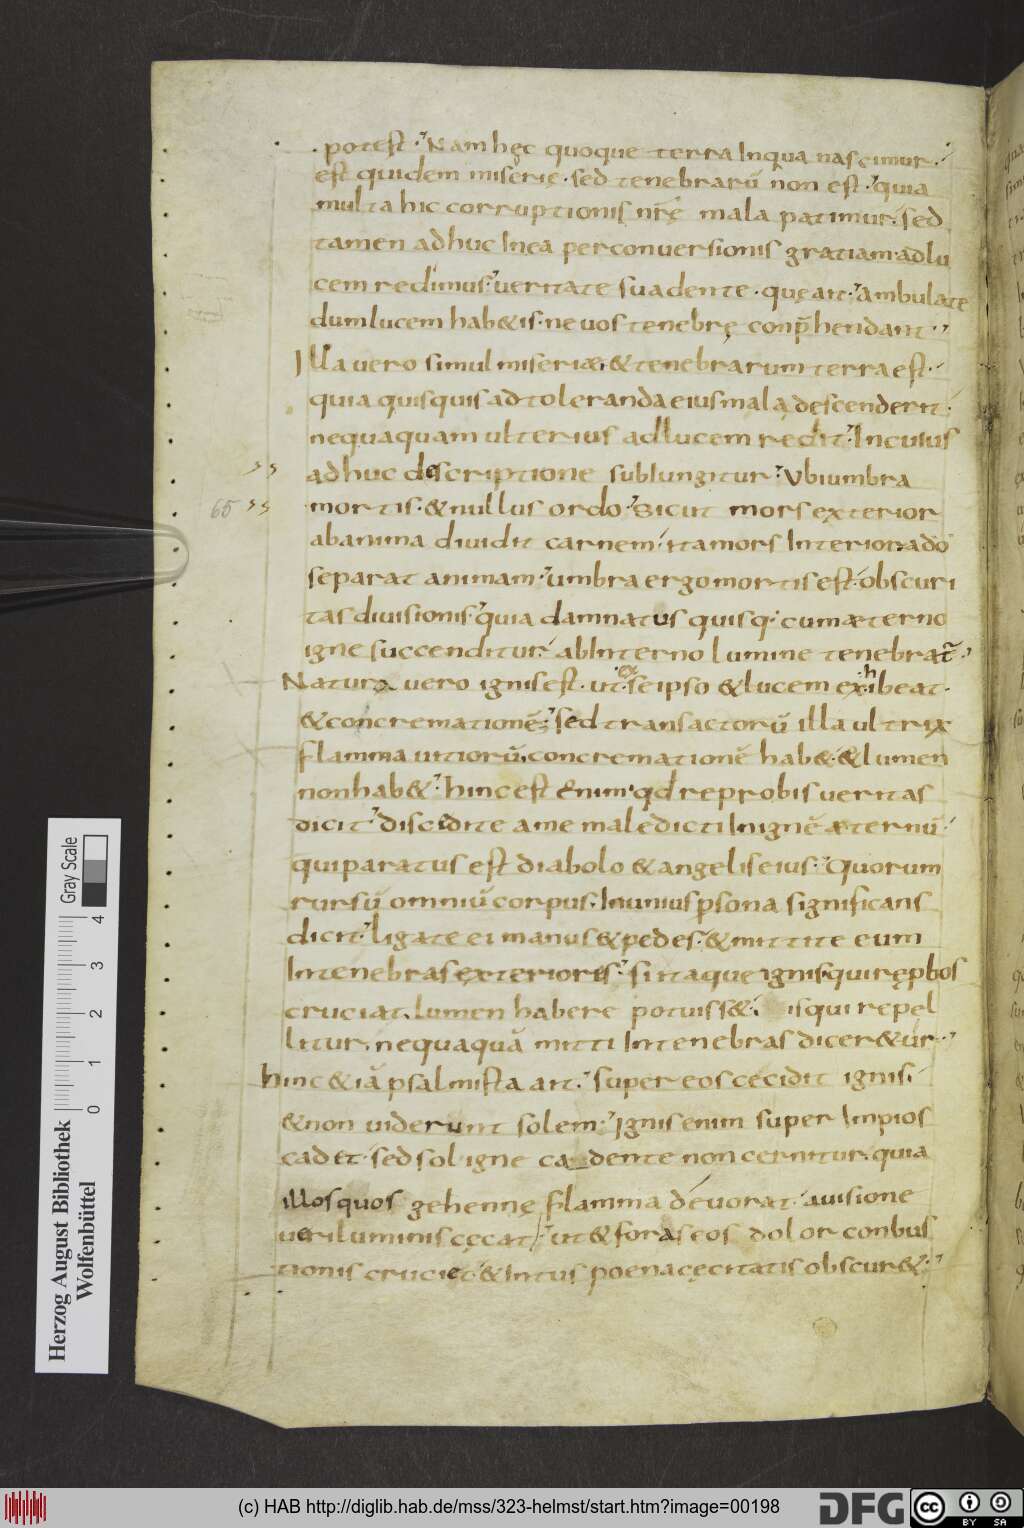 potest. Nam hęc quoque terra Inqua nascimur.
est quidem miserię. sed tenebrarū non est. quia
multa hic corruptionis nr̄ę mala patimur. sed
tamen adhuc Inea perconuersionis gratiam. adlu
cem redimus. ueritate suadente. quę ait. Ambulate
dumlucem hab&is. ne uos tenebrę conp̄hendant.
Illa uero simul miseriæ. & tenebrarum terra est.
quia quisquis ad toleranda eius mala descenderit.
nequaquam ulterius adlucem redit. Incuius
adhuc descriptione sublungitur. Ubi umbra
65 mortis. & nullus ordo. Sicut mors exterior
abanima diuidit carnem. ita mors Interior. ado
separat animam. umbra ergo mortis est. obscuri
tas diuisionis. quia damnatus quisq; cum æterno
igne succenditur. abInterno lumine tenebrat̄.
Natura uero ignis est. ut ex seipso & lucem exhibeat.
& concremationē; sed transactorū illa ultrix
flamma uitiorū. concremationē hab&. & lumen
non hab&. hinc est Enim qd reprobis ueritas
dicit. discedite ame maledicti Inignē æternū.
qui paratus est diabolo & angelis eius. Quorum
rursū omniū corpus. Inunius psona significans
dicit. ligate ei manus & pedes. & mittite eum
Intenebras exteriores. si itaque ignis. qui rępbos
cruciat. lumen habere potuiss&. is qui repel
litur. nequaquā mitti Intenebras dicer&ur.
hinc & iā psalmista ait. super eos cecidit ignis.
& non uiderunt solem. Ignis enim super Impios
cadet. sed sol igne cadente non cernitur. quia
illos quos gehennę flamma deuorat. auisione
ueri luminis cęcat. ut & foras eos dolor conbus
tionis cruciet. & Intus poena cęcitatis obscur&.
Gray Scale
4
3
2
1
0
Herzog August Bibliothek
Wolfenbüttel
(c) HAB http://diglib.hab.de/mss/323-helmst/start.htm?image=00198
DFG
cc
BY SA